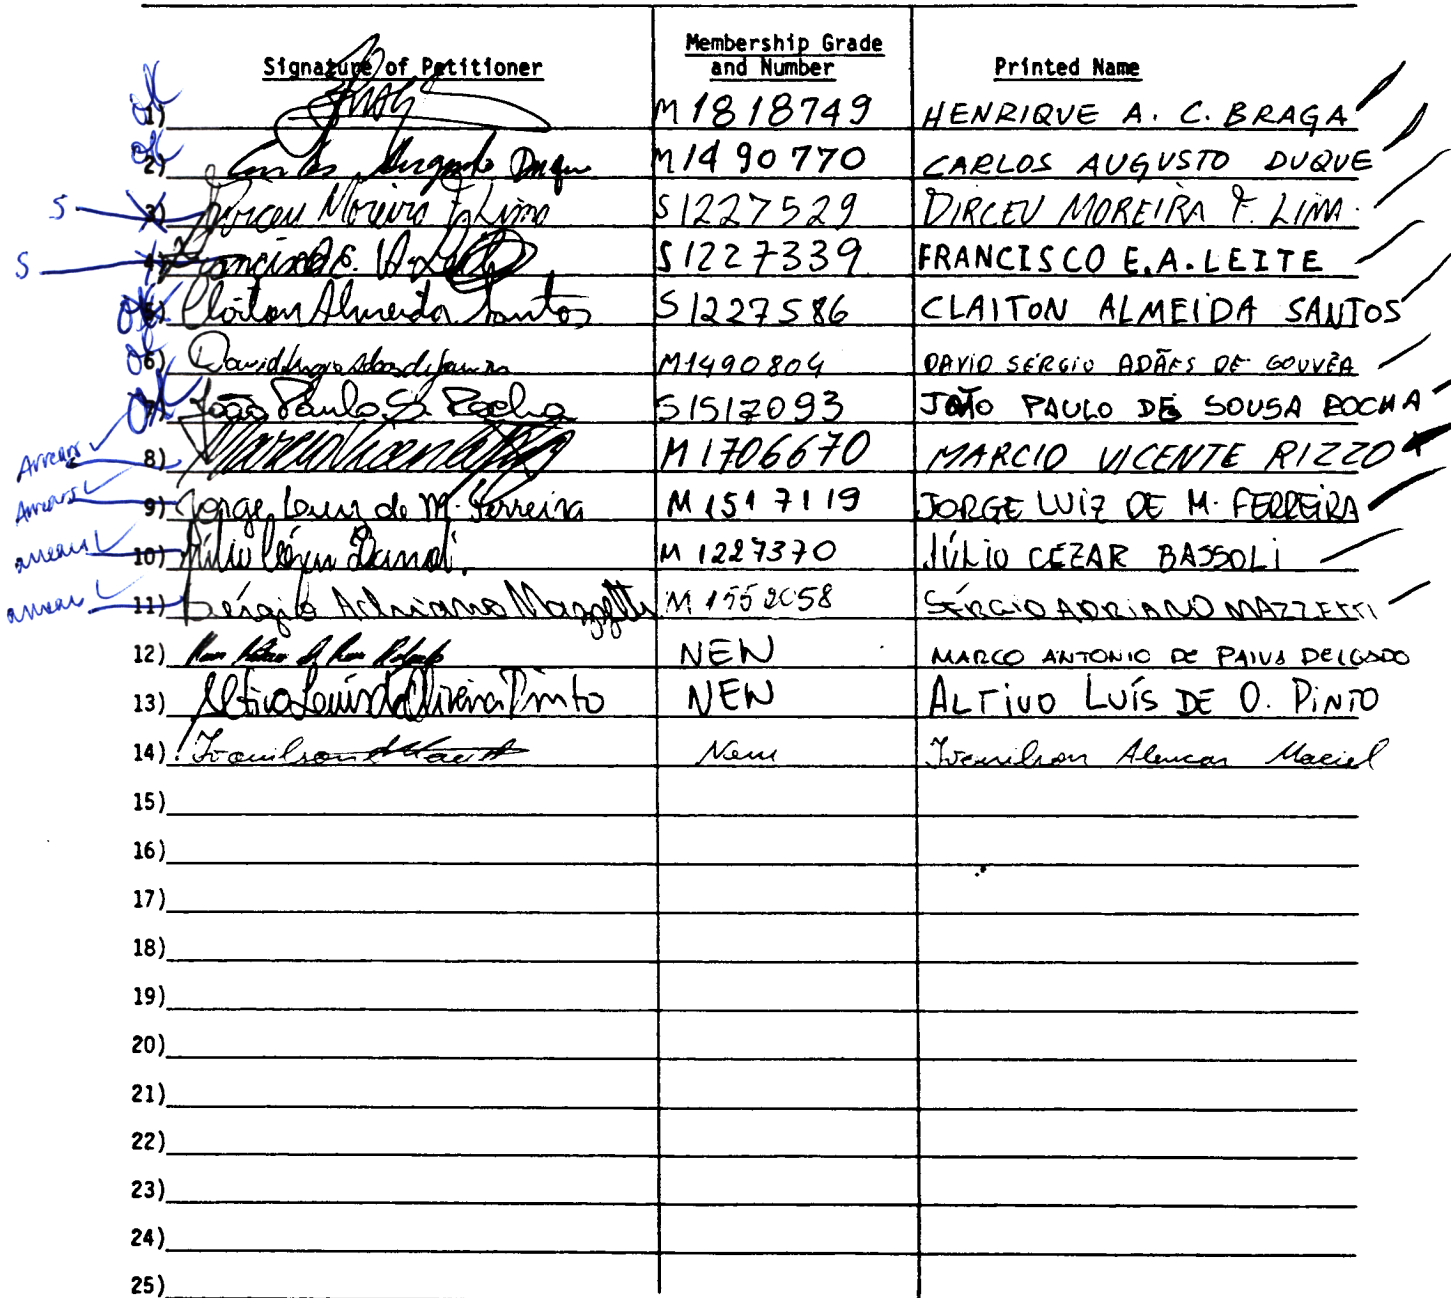 Signature of Petitioner Membership Grade and Number Printed Name
OK 1) M 1818749 HENRIQUE A. C. BRAGA
OK 2) Carlos Augusto Duque M 1490770 CARLOS AUGUSTO DUQUE
S 3) Dirceu Moreira F. Lima S 1227529 DIRCEU MOREIRA F. LIMA
S 4) S 1227339 FRANCISCO E.A. LEITE
OK 5) Claiton Almeida Santos S 1227586 CLAITON ALMEIDA SANTOS
OK 6) M1490804 DAVID SÉRGIO ADÃES DE GOUVÊA
OK 7) João Paulo S. Rocha S1512093 JOÃO PAULO DE SOUSA ROCHA
Arrears 8) M 1706670 MARCIO VICENTE RIZZO
Arrears 9) Jorge Luiz de M. Ferreira M 1517119 JORGE LUIZ DE M. FERREIRA
arrears 10) M 1227370 JÚLIO CEZAR BASSOLI
arrears 11) Sérgio Adriano Mazzetti M 1552058 SÉRGIO ADRIANO MAZZETTI
12) NEW MARCO ANTONIO DE PAIVA DELGADO
13) Altivo Luís de Oliveira Pinto NEW ALTIVO LUÍS DE O. PINTO
14) New Ivanilson Alencar Maciel
15)
16)
17)
18)
19)
20)
21)
22)
23)
24)
25)